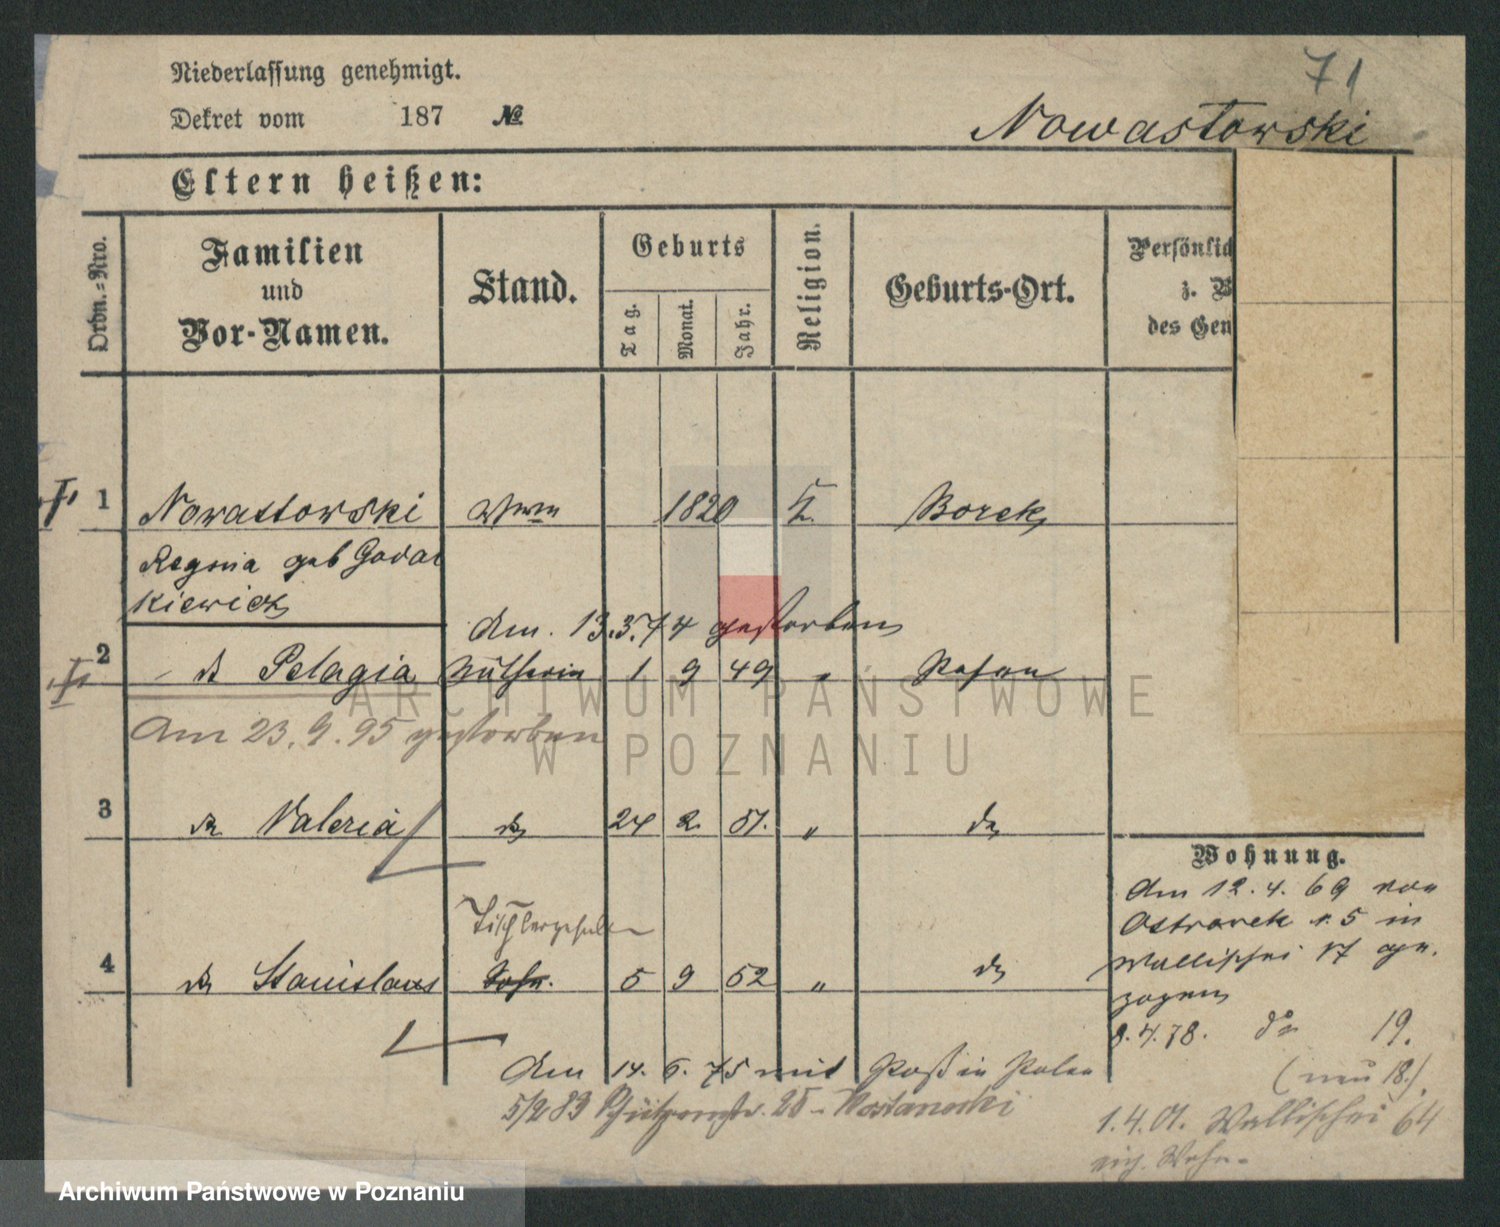 71
Niederlassung genehmigt.
Dekret vom 187 №
Nowastowski
Eltern heißen:
Ordn.-Nro.
Familien
und
Vor-Namen.
Stand.
Geburts
Tag.
Monat.
Jahr.
Religion.
Geburts-Ort.
Persönlic
z. V
des Gen
1 Nowastowski Wwe 1820 Borek
Regina geb Godar
kiewicz
Am. 13.3.74 gestorben
2 do Pelagia 1 9 49 " Posen
Am 23. 9. 95 gestorben
3 do Valeria do 24 2 51. " do
Wohnung.
Am 12. 4. 69 von
Ostrowek N. 5 in
Wallischei 17 ge.
zogen
8. 4. 78. do 19.
(neu 18.)
1. 4. 01. Wallischei 64
Tischlergeselle
4 do Stanislaus Sohn. 5 9 52 " do
Am 14. 6. 75 mit Paß in Polen
5/2 83 Schützenstr. 25
ARCHIWUM PAŃSTWOWE
W POZNANIU
Archiwum Państwowe w Poznaniu